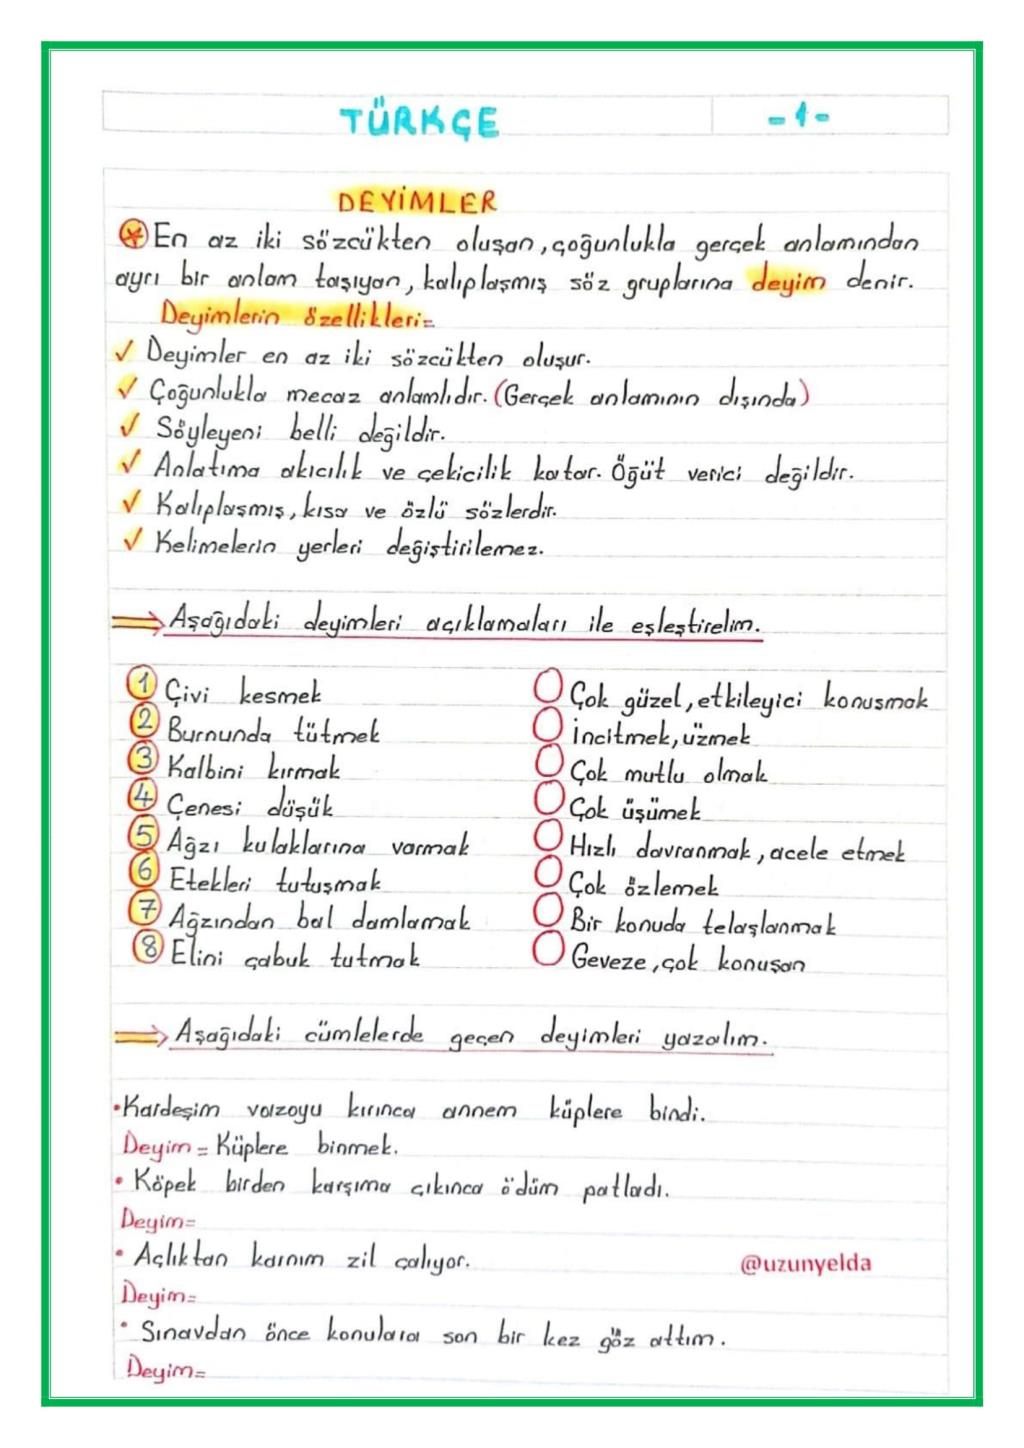 TÜRKÇE -1-
DEYİMLER
En az iki sözcükten oluşan, çoğunlukla gerçek anlamından
ayrı bir anlam taşıyan, kalıplaşmış söz gruplarına deyim denir.
Deyimlerin özellikleri=
✓ Deyimler en az iki sözcükten oluşur.
✓ Çoğunlukla mecaz anlamlıdır. (Gerçek anlamının dışında)
✓ Söyleyeni belli değildir.
✓ Anlatıma akıcılık ve çekicilik katar. Öğüt verici değildir.
✓ Kalıplaşmış, kısa ve özlü sözlerdir.
✓ Kelimelerin yerleri değiştirilemez.
⇒ Aşağıdaki deyimleri açıklamaları ile eşleştirelim.
1 Çivi kesmek
2 Burnunda tütmek
3 Kalbini kırmak
4 Çenesi düşük
5 Ağzı kulaklarına varmak
6 Etekleri tutuşmak
7 Ağzından bal damlamak
8 Elini çabuk tutmak
Çok güzel, etkileyici konusmak
İncitmek, üzmek
Çok mutlu olmak
Çok üşümek
Hızlı davranmak, acele etmek
Çok özlemek
Bir konuda telaşlanmak
Geveze, çok konuşan
⇒ Aşağıdaki cümlelerde geçen deyimleri yazalım.
• Kardeşim vazoyu kırınca annem küplere bindi.
Deyim = Küplere binmek.
• Köpek birden karşıma çıkınca ödüm patladı.
Deyim=
• Açlıktan karnım zil çalıyor.
@uzunyelda
Deyim=
• Sınavdan önce konulara son bir kez göz attım.
Deyim=